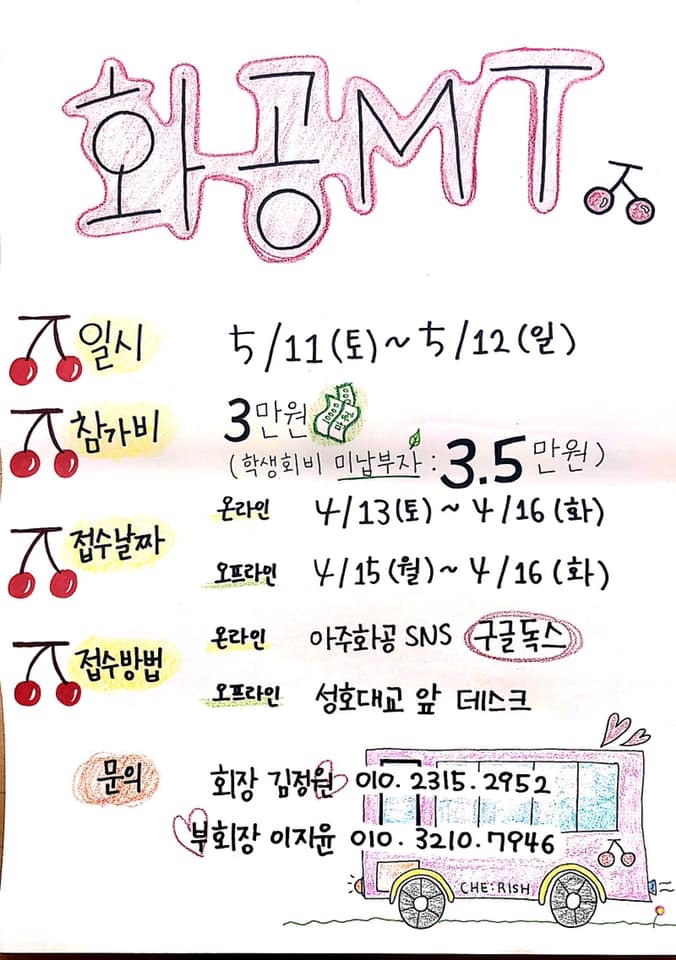 화공MT
일시 5/11(토)~5/12(일)
참가비 3만원 10000 만원
(학생회비 미납부자: 3.5만원)
접수날짜 온라인 4/13(토)~4/16(화)
오프라인 4/15(월)~4/16(화)
접수방법 온라인 아주화공 SNS 구글독스
오프라인 성호대교 앞 데스크
문의 회장 김정원 010.2315.2952
부회장 이지윤 010.3210.7946
CHE:RISH